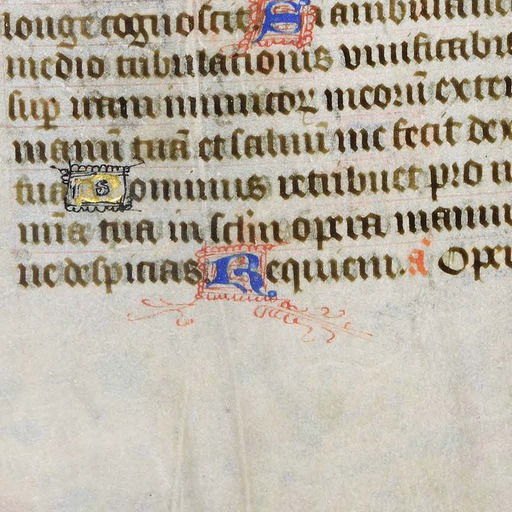 longe cognoscit S ambulave
medio tribulationis vivificabis
sup iram inimicoꝝ meoꝝ exten
manū tuā et saluū me fecit dex
tua Dominus retribuet pro m
mīa tua in sclm opera manuu
ne despicias Requiem. a Ope